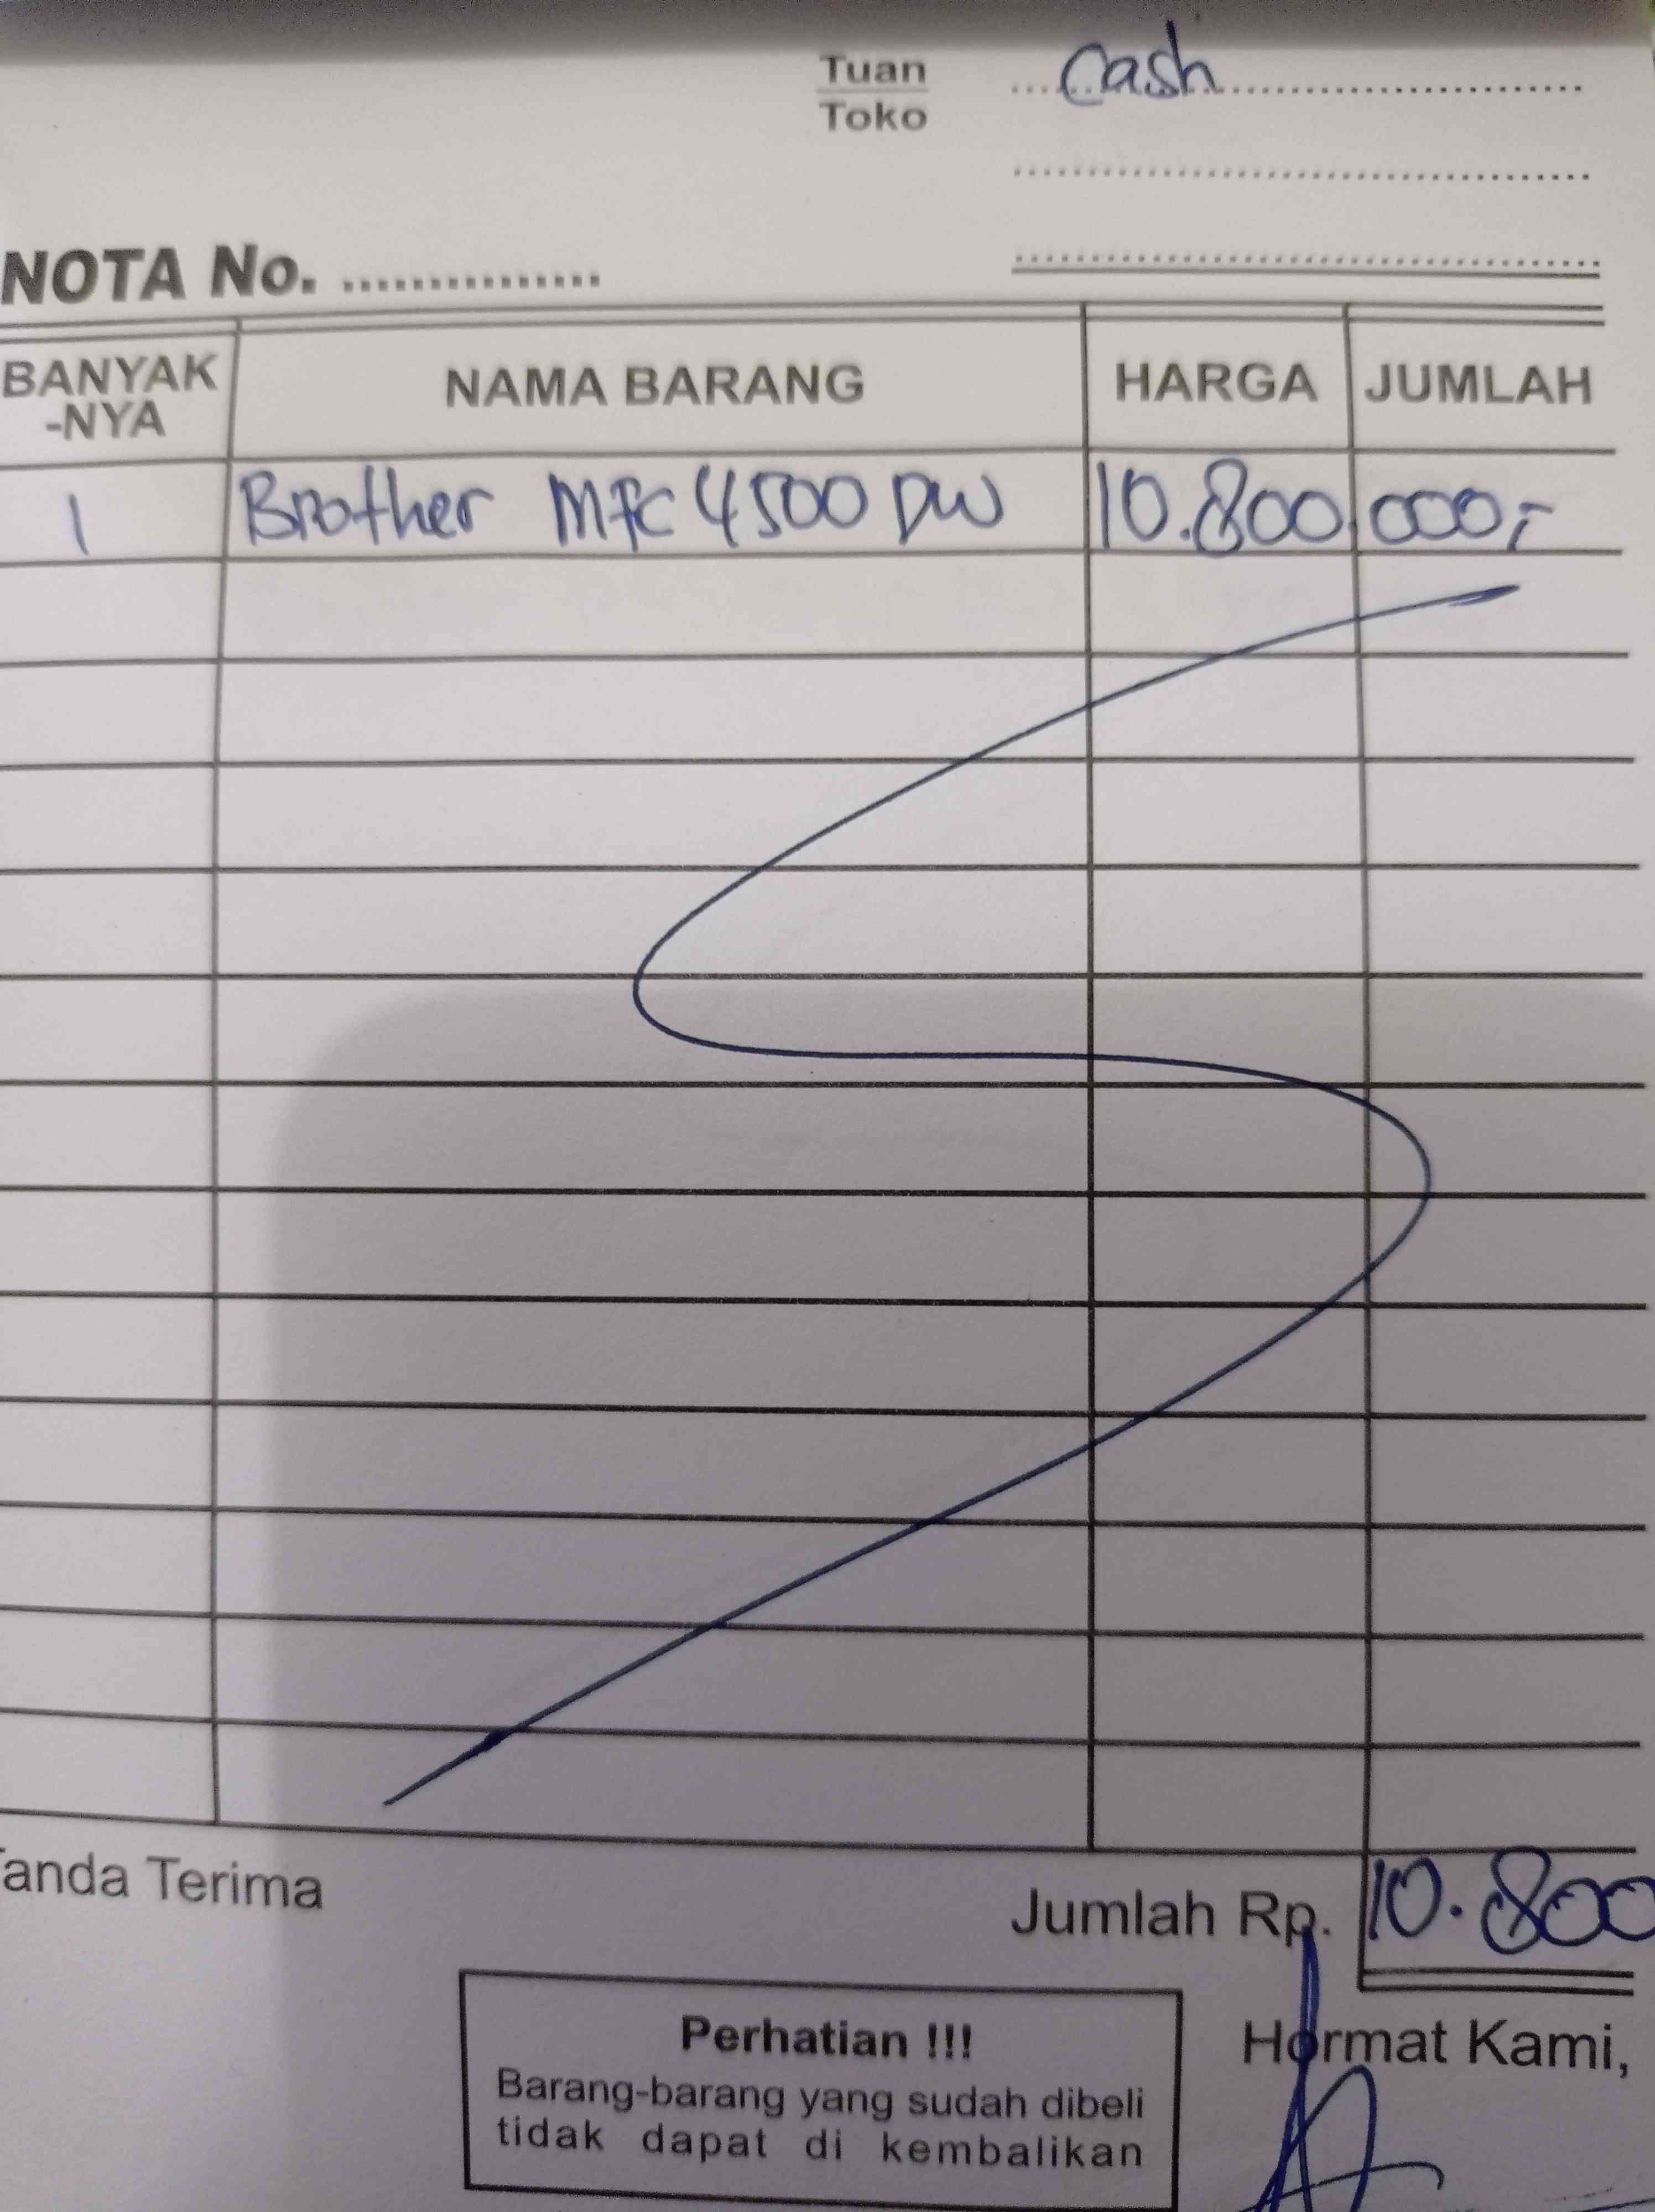 Tuan Cash
Toko
NOTA No. ...............
BANYAK-NYA NAMA BARANG HARGA JUMLAH
1 Brother MFC 4500 DW 10.800.000,-
anda Terima
Jumlah Rp. 10.800
Perhatian !!!
Hormat Kami,
Barang-barang yang sudah dibeli
tidak dapat di kembalikan